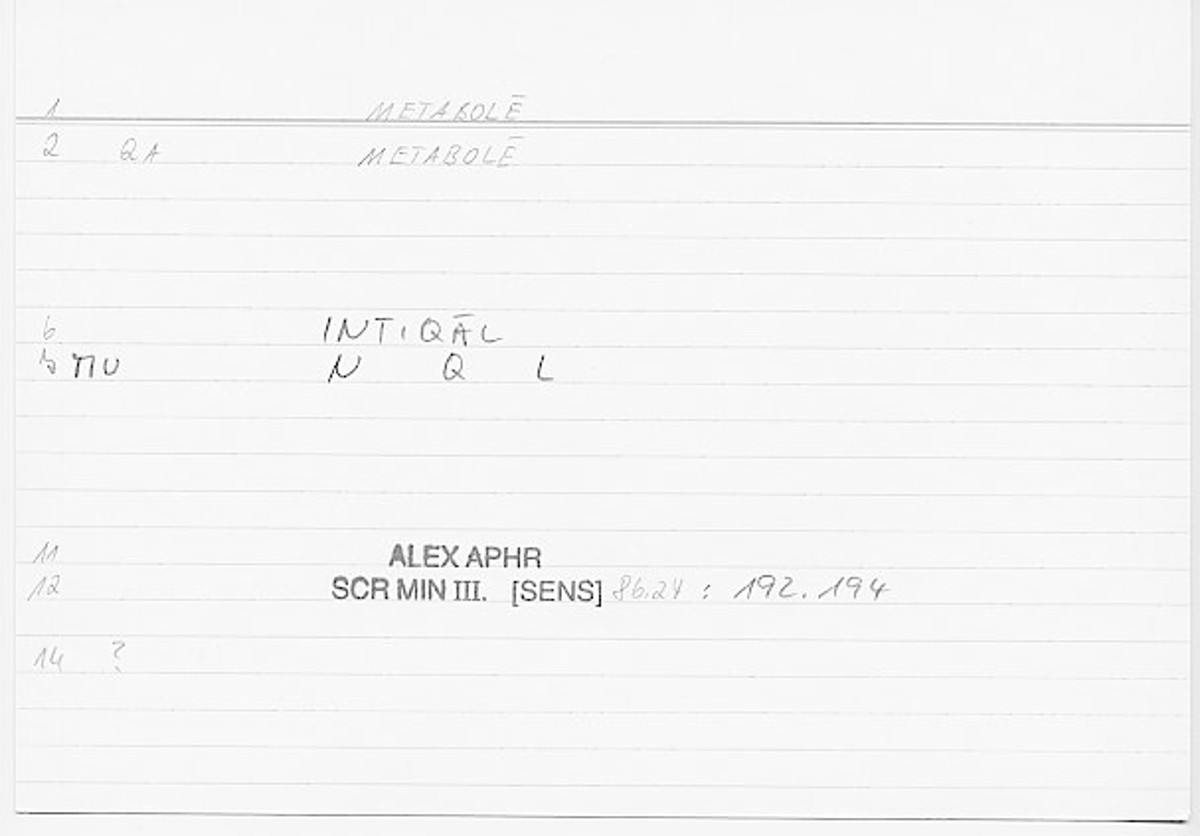 1 METABOLĒ
2 QA METABOLĒ
6 INTIQĀL
5 MU N Q L
11 ALEX APHR
12 SCR MIN III. [SENS] 86.24 : 192.194
14 ?